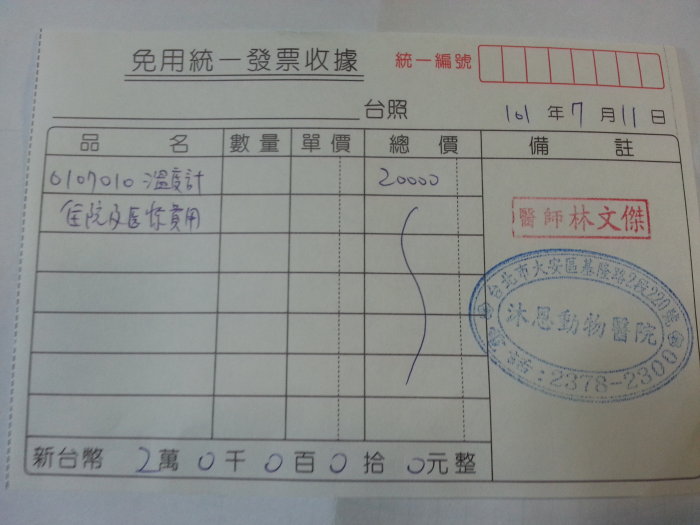 免用統一發票收據
統一編號
台照
101 年 7 月 11 日
品名 數量 單價 總價 備註
0107010 溫度計 20000
住院及医療費用
醫師林文傑
台北市大安區基隆路2段220號
沐恩動物醫院
電話:2378-2300
新台幣 2萬0千0百0拾0元整